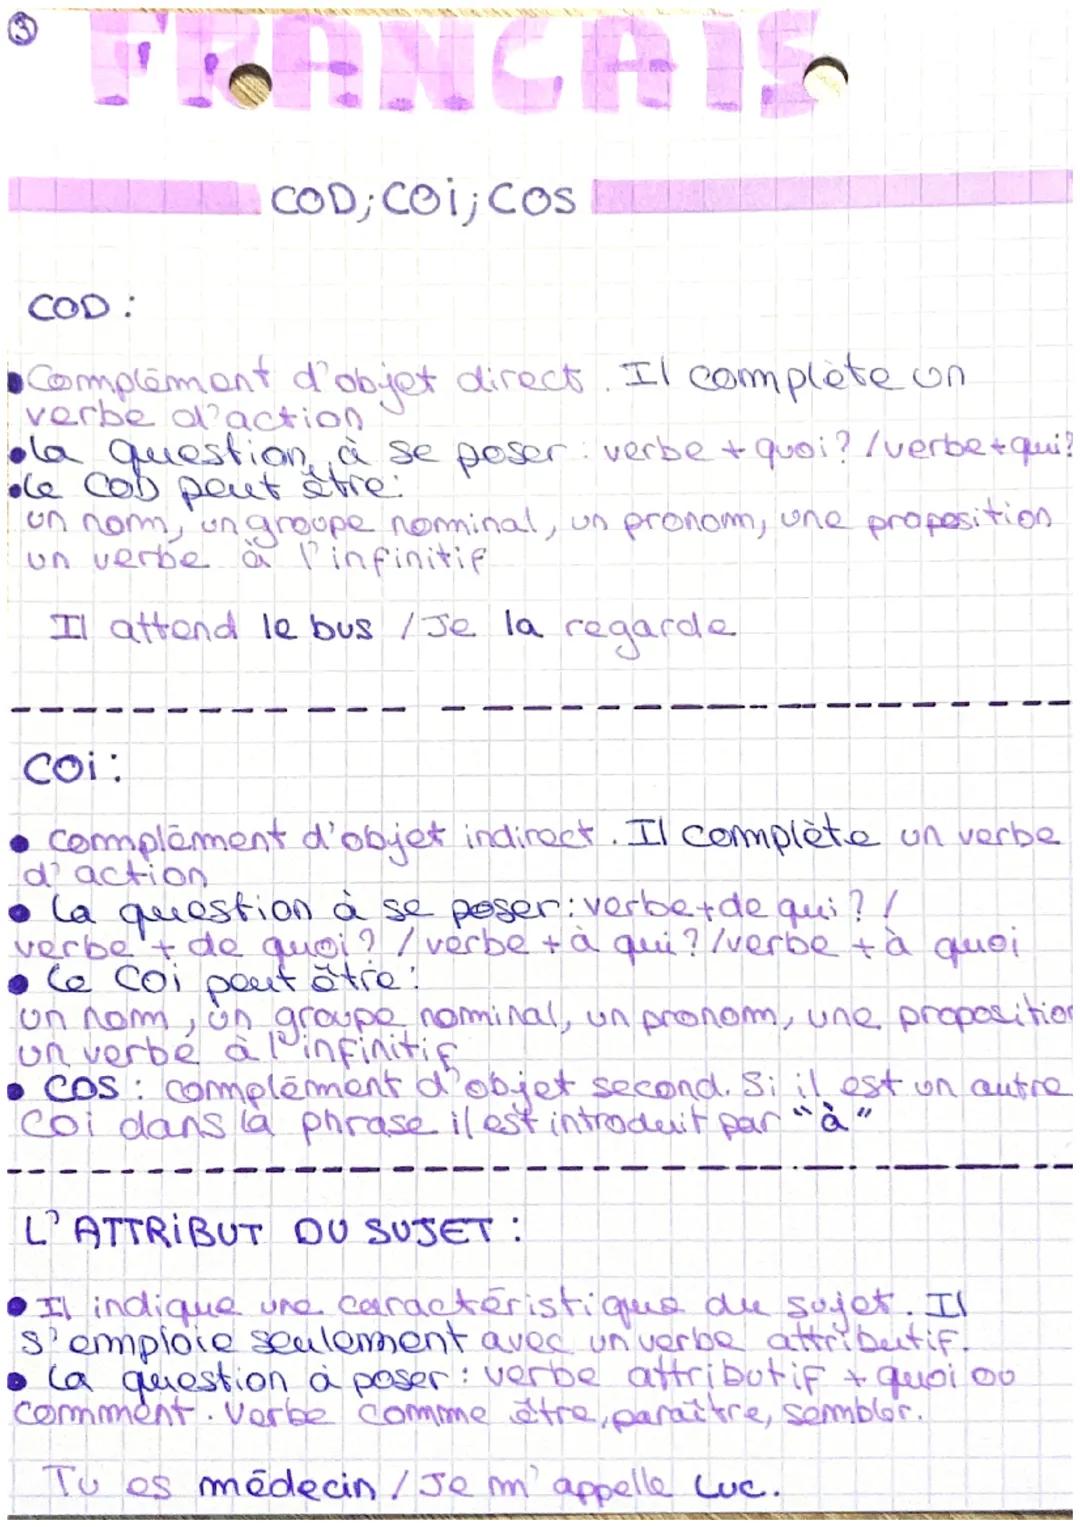 3
FRANCAIS
COD; COi; COS
COD :
• Complément d'objet direct. Il complète un
verbe d'action
• la question à se poser : verbe + quoi ? / verbe + qui ?
• le COD peut être :
un nom, un groupe nominal, un pronom, une proposition
un verbe à l'infinitif
Il attend le bus / Je la regarde
COi :
• complément d'objet indirect. Il complète un verbe
d'action
• la question à se poser : verbe + de qui ? /
verbe + de quoi ? / verbe + à qui ? / verbe + à quoi
• le COi peut être :
un nom, un groupe nominal, un pronom, une proposition
un verbe à l'infinitif
• COS : complément d'objet second. Si il est un autre
COi dans la phrase il est introduit par "à"
L'ATTRiBUT DU SUJET :
• Il indique une caractéristique du sujet. Il
s'emploie seulement avec un verbe attributif.
• la question à poser : verbe attributif + quoi ou
comment. Verbe comme être, paraître, sembler.
Tu es médecin / Je m'appelle Luc.